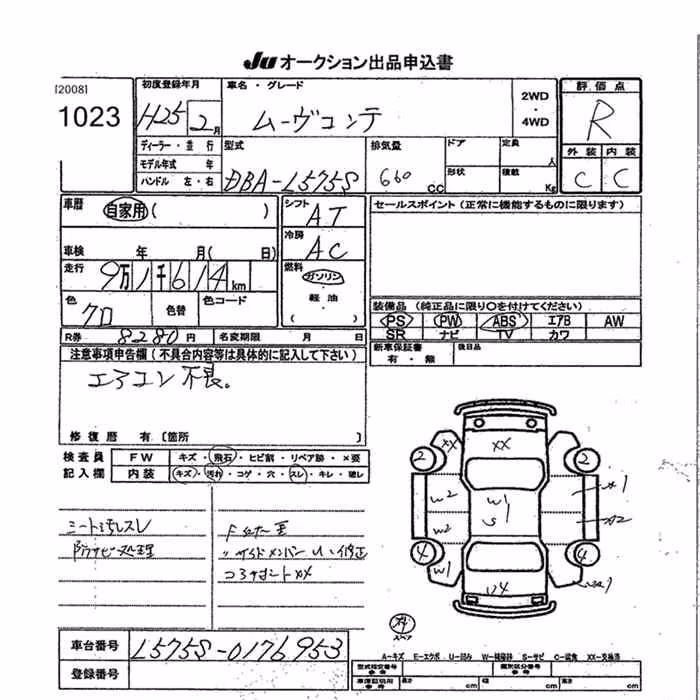 Ju オークション出品申込書
[2008]
1023
初度登録年月
H25 2月
車名・グレード
ムーヴコンテ
2WD・4WD
評価点
R
外装 内装
C C
ディーラー・並行
モデル年式 年
ハンドル 左・右
型式
DBA-L575S
排気量
660 cc
ドア
形状
定員 人
積載 Kg
車歴
自家用 ( )
車検 年 月( 日)
走行
9万1千614km
色
クロ
色替
色コード
シフト
AT
冷房
AC
燃料
ガソリン
軽油
( )
セールスポイント(正常に機能するものに限ります)
装備品(純正品に限り○を付けてください)
PS PW ABS エアB AW
SR ナビ TV カワ
新車保証書
有・無
後日品
R券 8280円 名変期限 月 日
注意事項申告欄(不具合内容等は具体的に記入して下さい)
エアコン不良。
修復歴 有〔箇所
検査員記入欄
FW キズ・飛石・ヒビ割・リペア跡・×要
内装 キズ・汚れ・コゲ・穴・スレ・キレ・破レ
シート汚レスレ
防サビ処理
〃サイドメンバー U・修正
車台番号 L575S-0176953
登録番号
XX
XX
2
2
W2
W1
S
W2
4
4
W1
U4
A-キズ E-エクボ U-凹み W-補修跡 S-サビ C-腐食 XX-交換済
型式指定番号
類別区分番号
長さ cm
幅 cm
高さ cm